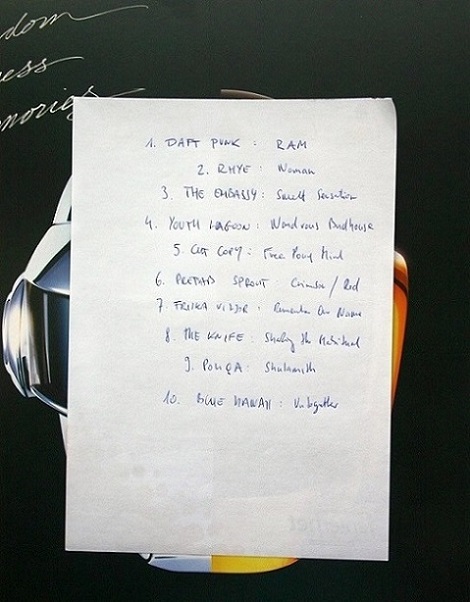 dom
ess
mories
1. DAFT PUNK : RAM
2. RHYE : Woman
3. THE EMBASSY : Sweet Sensation
4. YOUTH LAGOON : Wondrous Bughouse
5. CUT COPY : Free Your Mind
6. PREFAB SPROUT : Crimson / Red
7. : Remember Our Name
8. THE KNIFE : Shaking the Habitual
9. POLIÇA : Shulamith
10. BLUE HAWAII : Untogether